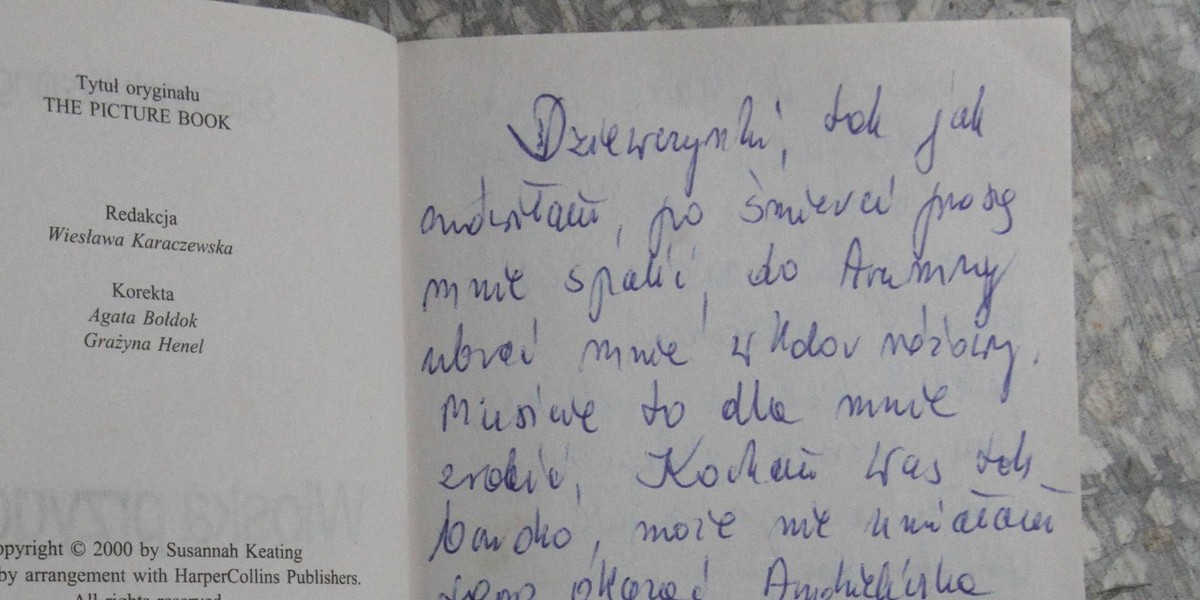 Tytuł oryginału
THE PICTURE BOOK
Redakcja
Wiesława Karaczewska
Korekta
Agata Bołdok
Grażyna Henel
opyright © 2000 by Susannah Keating
by arrangement with HarperCollins Publishers.
All rights reserved
Dziewczynki, tak jak
mówiłam, po śmierci proszę
mnie spalić, do trumny
ubrać mnie w kolor różowy.
Musicie to dla mnie
zrobić, Kocham was tak
bardzo, może nie umiałam
okazać